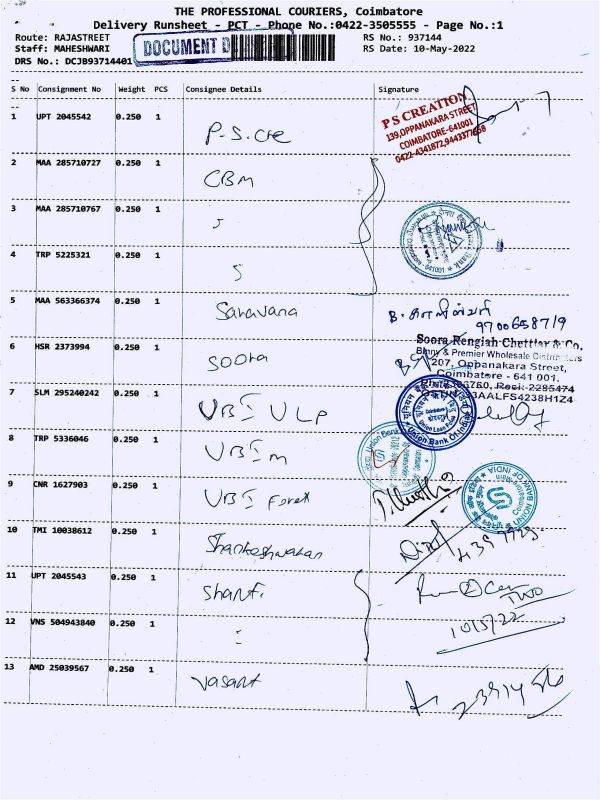 THE PROFESSIONAL COURIERS, Coimbatore
Delivery Runsheet - PCT - Phone No.:0422-3505555 - Page No.:1
Route: RAJASTREET RS No.: 937144
Staff: MAHESHWARI DOCUMENT D RS Date: 10-May-2022
DRS No.: DCJB93714401
S No Consignment No Weight PCS Consignee Details Signature
1 UPT 2045542 0.250 1 P.S. Cre
P S CREATION
139,OPPANAKARA STREET
COIMBATORE-641001
2 MAA 285710727 0.250 1 CBM
3 MAA 285710767 0.250 1
4 TRP 5225321 0.250 1
5 MAA 563366374 0.250 1 Saravana
9700658719
6 HSR 2373994 0.250 1 Soora
Soora Rengiah Chettiar & Co.
Binny & Premier Wholesale Distributors
207, Oppanakara Street,
Coimbatore - 641 001.
7 SLM 295240242 0.250 1 UBI ULP
Union Bank Of India
8 TRP 5336046 0.250 1 UBI M
9 CNR 1627903 0.250 1 UBI Forex
UNION BANK OF INDIA
10 TMI 10038612 0.250 1
11 UPT 2045543 0.250 1 Shanti
Two
10/5/22
12 VNS 504943840 0.250 1
13 AMD 25039567 0.250 1 Vasant